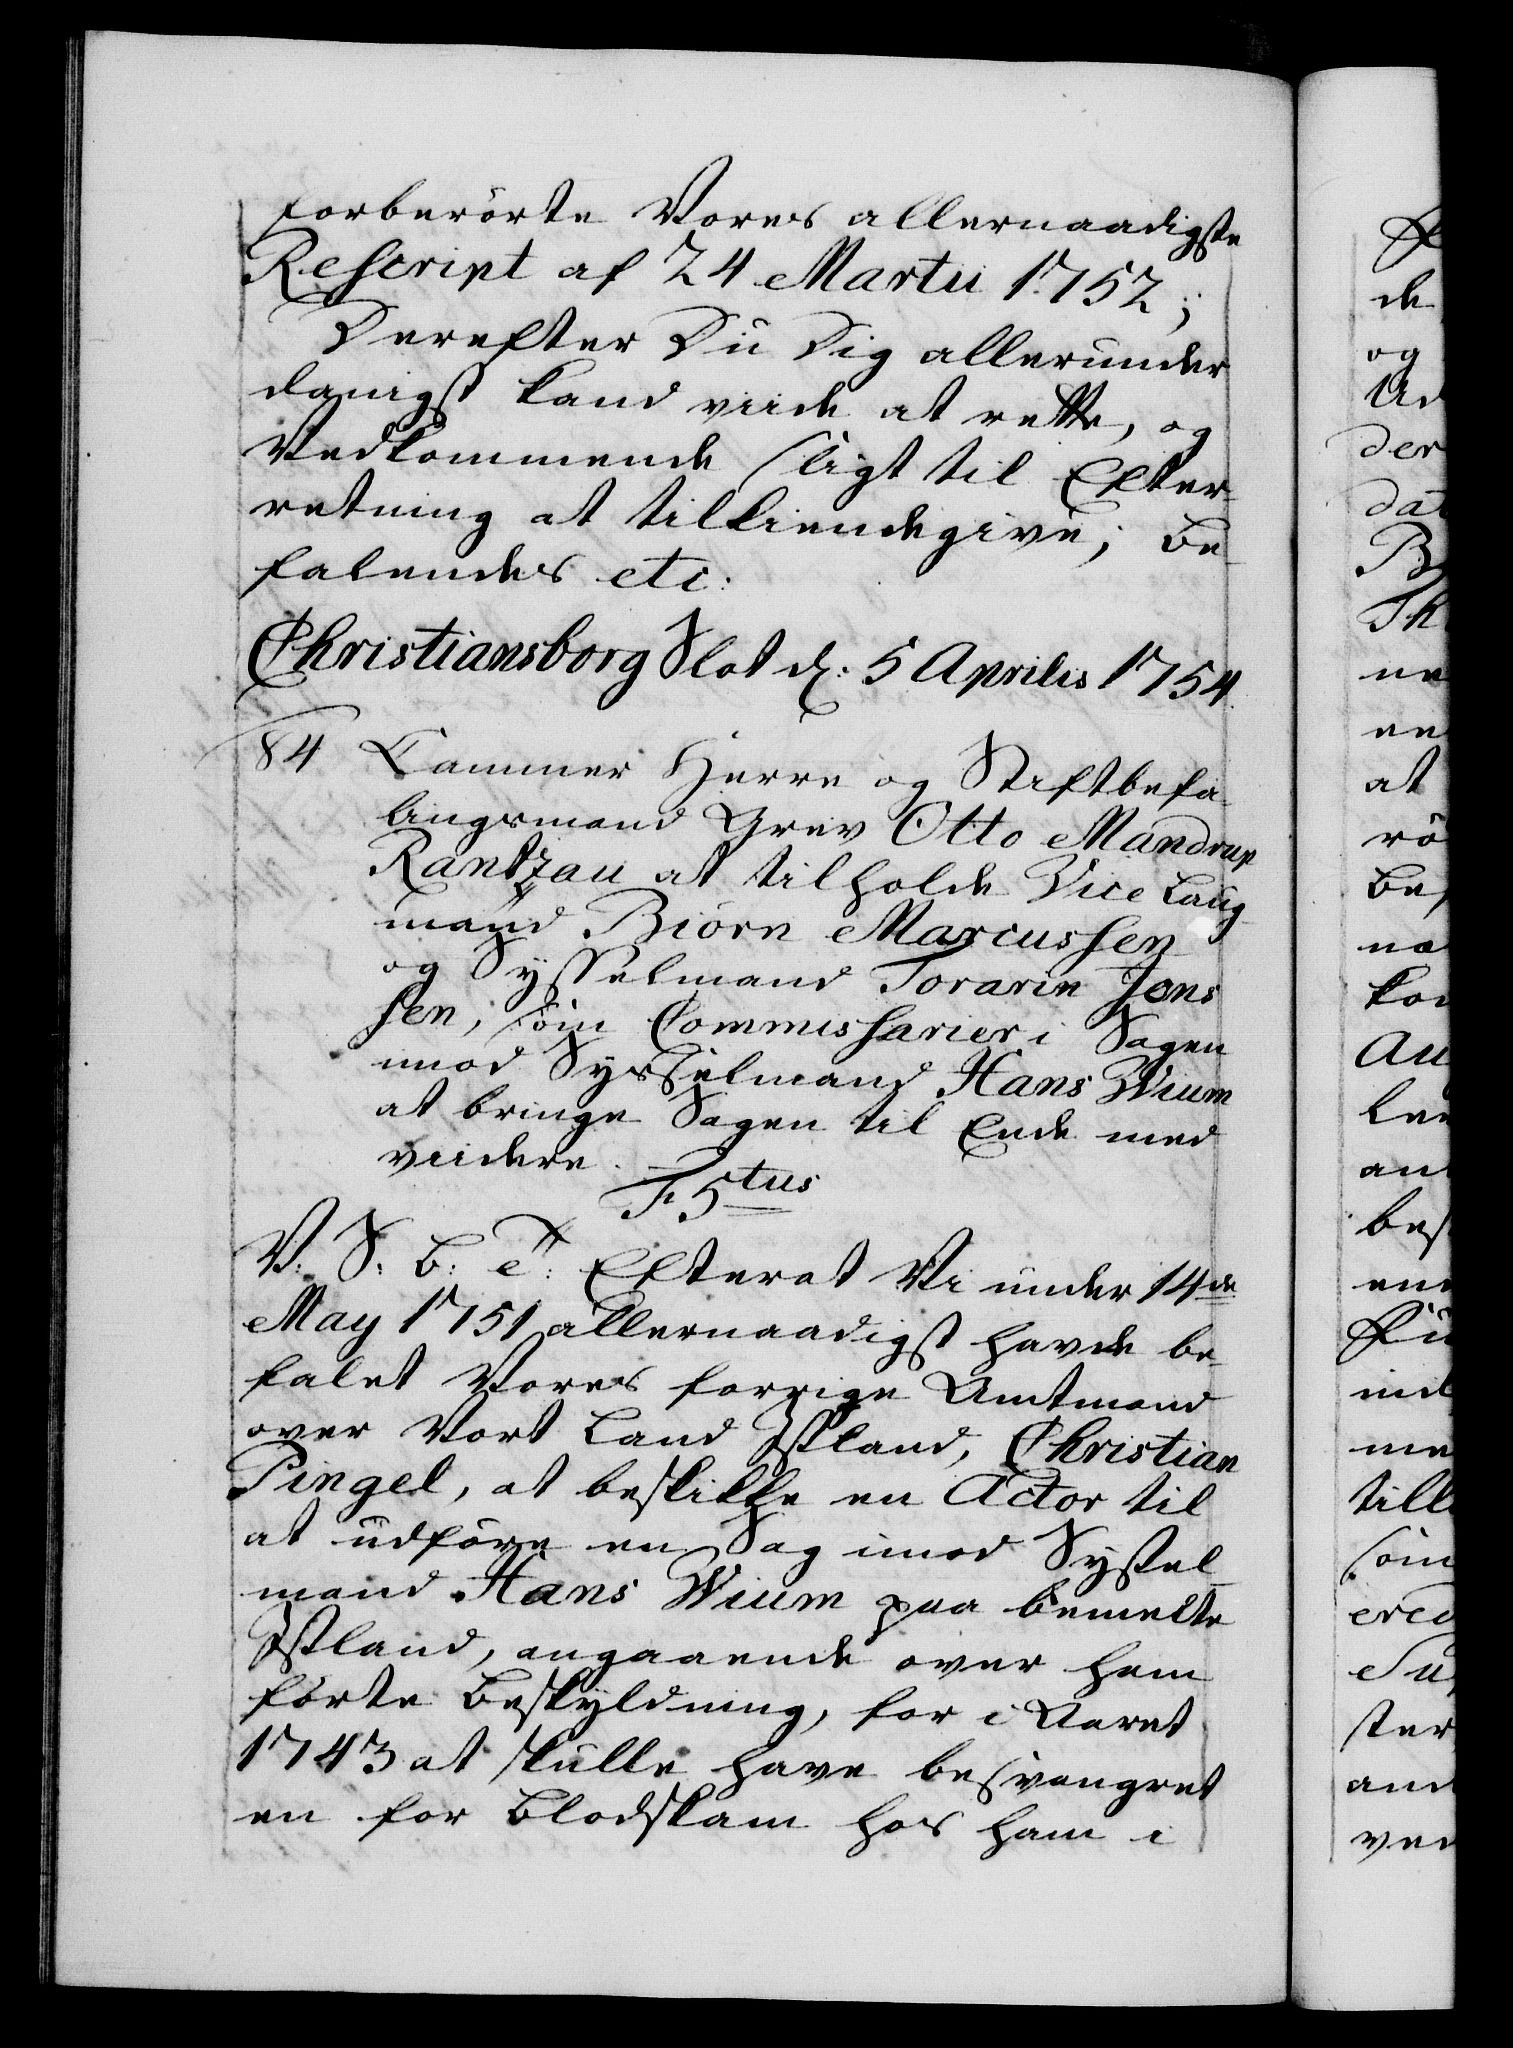 forberörte Vores allernaadigste
Rescript af 24 Martii 1752;
Derefter Du Dig allerunder
danigst kand viide at rette, og
Vedkommende sligt til Efter-
retning at tilkiendegive; be-
falendes etc:
Christiansborg Slot d: 5 Aprilis 1754.
84 Cammer Herre og Stiftbefa-
lingsmand Grev Otto Mandrup
Rantzau at tilholde Vice Laug-
mand Biörn Marcussen
og Sysselmand Torarin Jens
sen, som Commissarier i Sagen
imod Sysselmand Hans Wium
at bringe Sagen til Ende med
viidere.
F. 5tus
V. S. B: e: Efterat Vi under 14de
May 1751 allernaadigst havde be-
falet Vores forrige Amtmand
over Vort Land Issland, Christian
Pingel, at beskikke en Actor til
at udföre en Sag imod Syssel-
mand Hans Wium paa bemelte
Issland, angaaende over ham
förte Beskyldning, for i Aaret
1743 at skulle have besvangret
en for Blodskam hos ham i
de
og
der
at